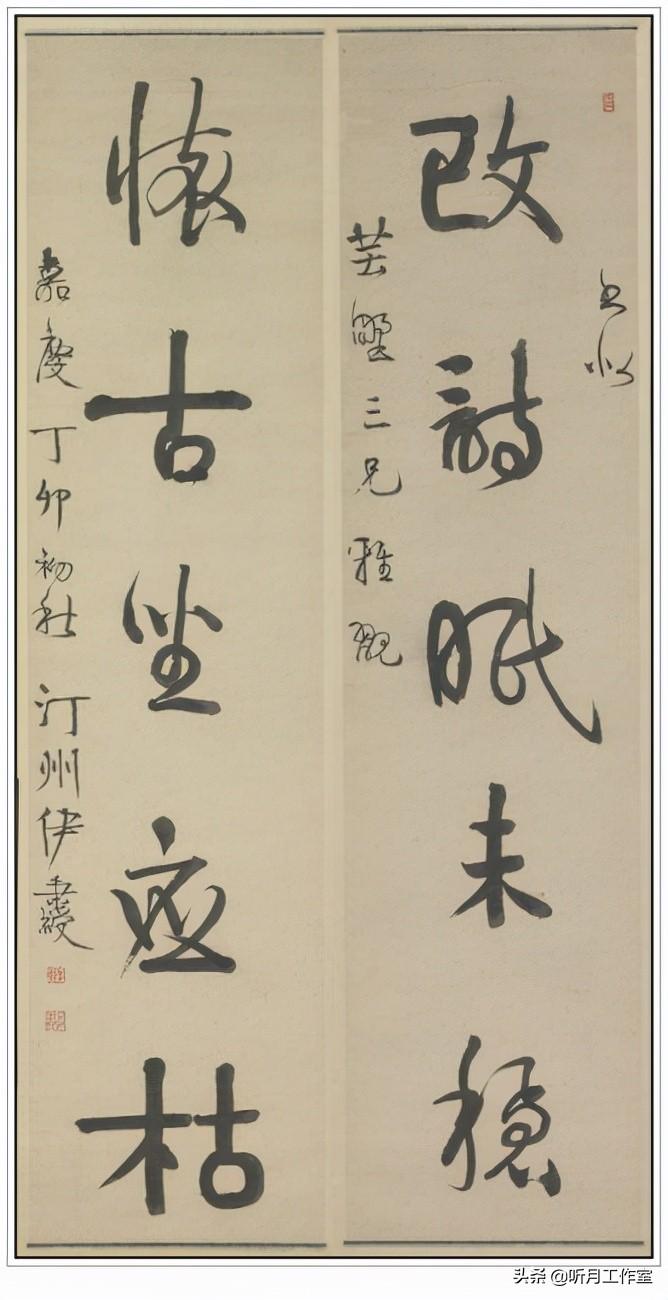 書似
改詩眠未穩
芸墅三兄雅觀
懷古坐應枯
嘉慶丁卯初秋 汀州伊秉綬
头条 @听月工作室